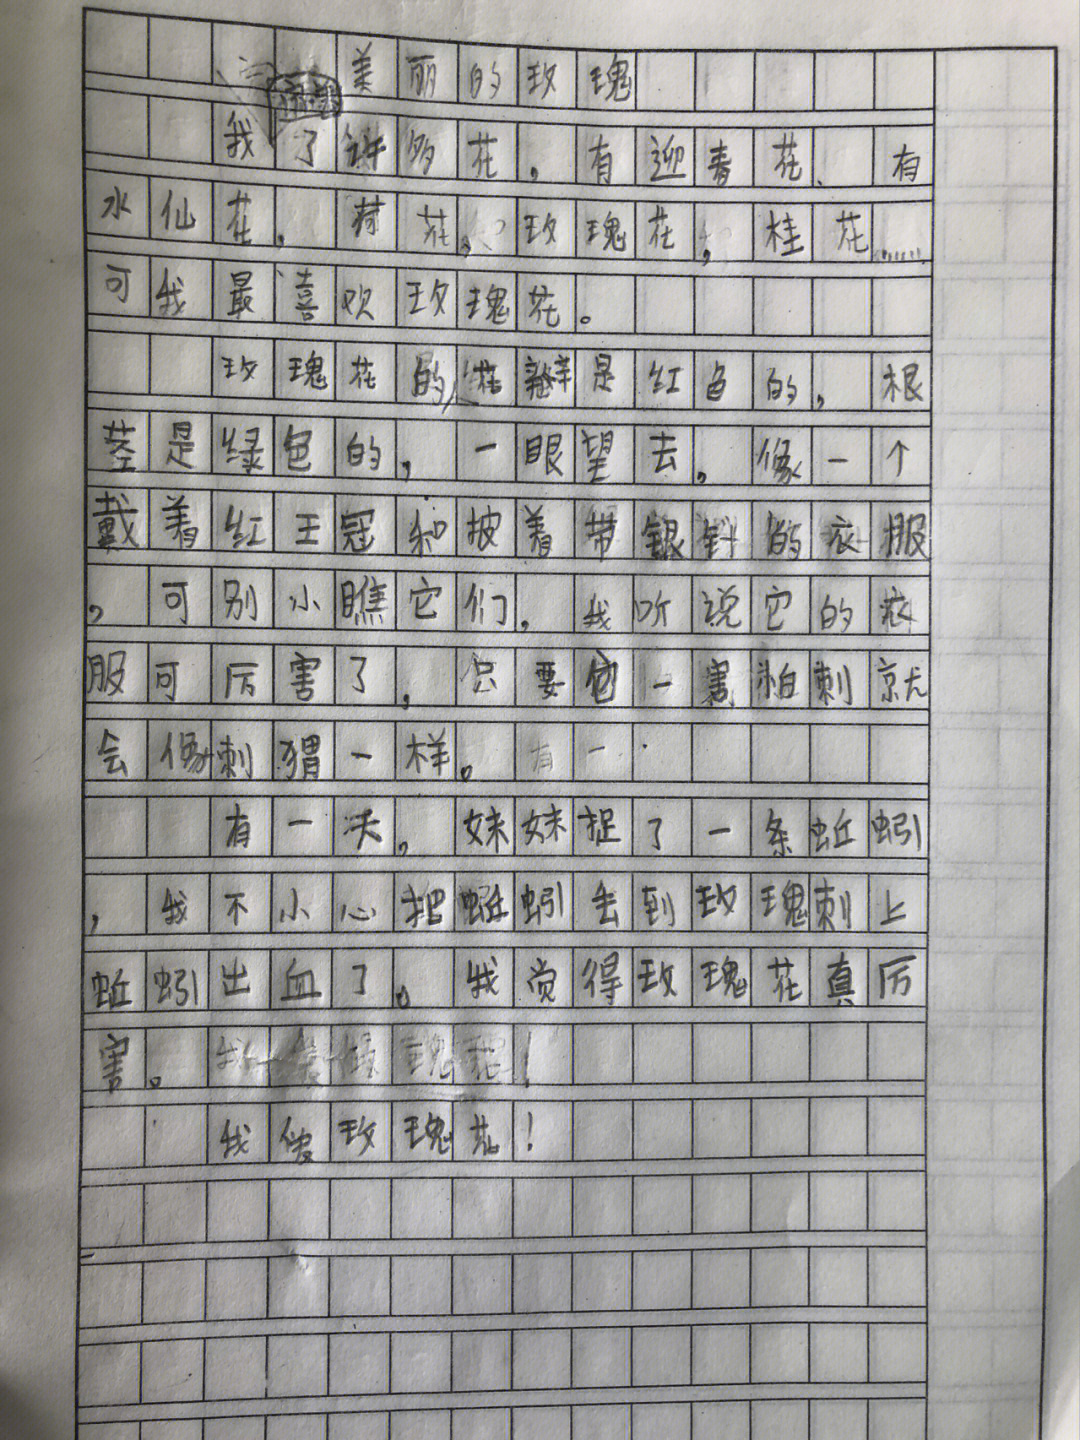 美丽的玫瑰
我了许多花，有迎春花、有
水仙花，荷花，玫瑰花，桂花……
可我最喜欢玫瑰花。
玫瑰花的花瓣是红色的，根
茎是绿色的，一眼望去，像一个
戴着红王冠和披着带银针的衣服
，可别小瞧它们，我听说它的衣
服可厉害了，只要它一害怕刺就
会像刺猬一样。有一
有一天，妹妹捉了一条蚯蚓
，我不小心把蚯蚓丢到玫瑰刺上
蚯蚓出血了。我觉得玫瑰花真厉
害。
我玫瑰花！